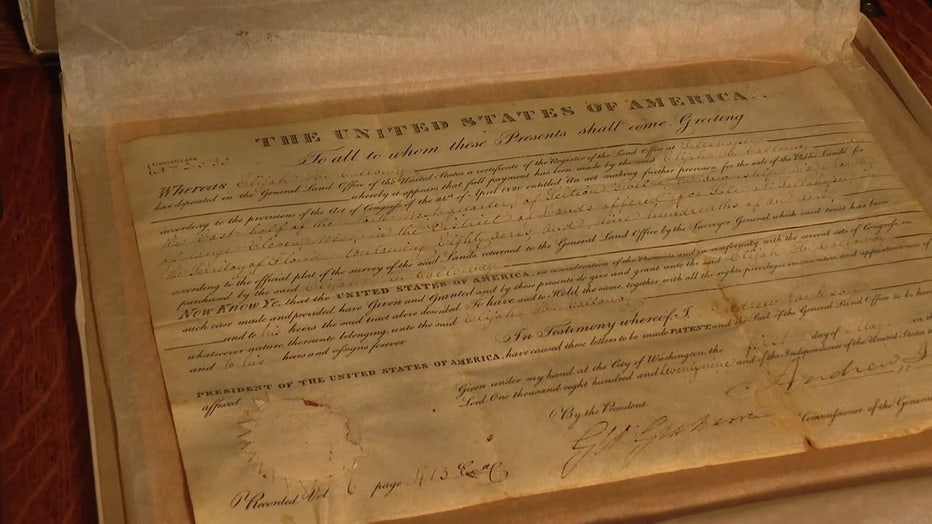 THE UNITED STATES OF AMERICA.
To all to whom these Presents shall come, Greeting
Certificate
No 530
Whereas Elijah H. Calloway
has deposited in the General Land Office of the United States a certificate of the Register of the Land Office at Tallahassee
whereby it appears that full payment has been made by the said Elijah H. Calloway
according to the provisions of the Act of Congress of the 24th of April 1820 entitled An act making further provision for the sale of the Public Lands for
the East half of the North West quarter of Section Twelve in Township
of range Eleven West, in the District of Lands offered for sale at Tallahassee in
the Territory of Florida containing Eighty acres and nine hundredths of an acre
according to the official plat of the survey of the said Lands returned to the General Land Office by the Surveyor General which said tract has been
purchased by the said Elijah H. Calloway
Now Know Ye, that the UNITED STATES OF AMERICA, in consideration of the Premises and in conformity with the several acts of Congress in
such case made and provided have Given and Granted and by these presents do give and grant unto the said Elijah H. Calloway
and to his heirs the said tract above described, To have and to Hold the same, together with all the rights privileges immunities and appurtenances of
whatsoever nature, thereunto belong, unto the said Elijah H. Calloway
and to his heirs and assigns forever
In Testimony whereof I, Andrew Jackson
PRESIDENT OF THE UNITED STATES OF AMERICA, have caused these letters to be made PATENT, and the Seal of the General Land Office to be
affixed.
Given under my hand at the City of Washington, the first day of May in the
Lord One thousand eight hundred and twenty nine and of the Independence of the United States the
By the President.
Andrew
G. W. Graham
Commissioner of the General
Recorded Vol 6 page 413